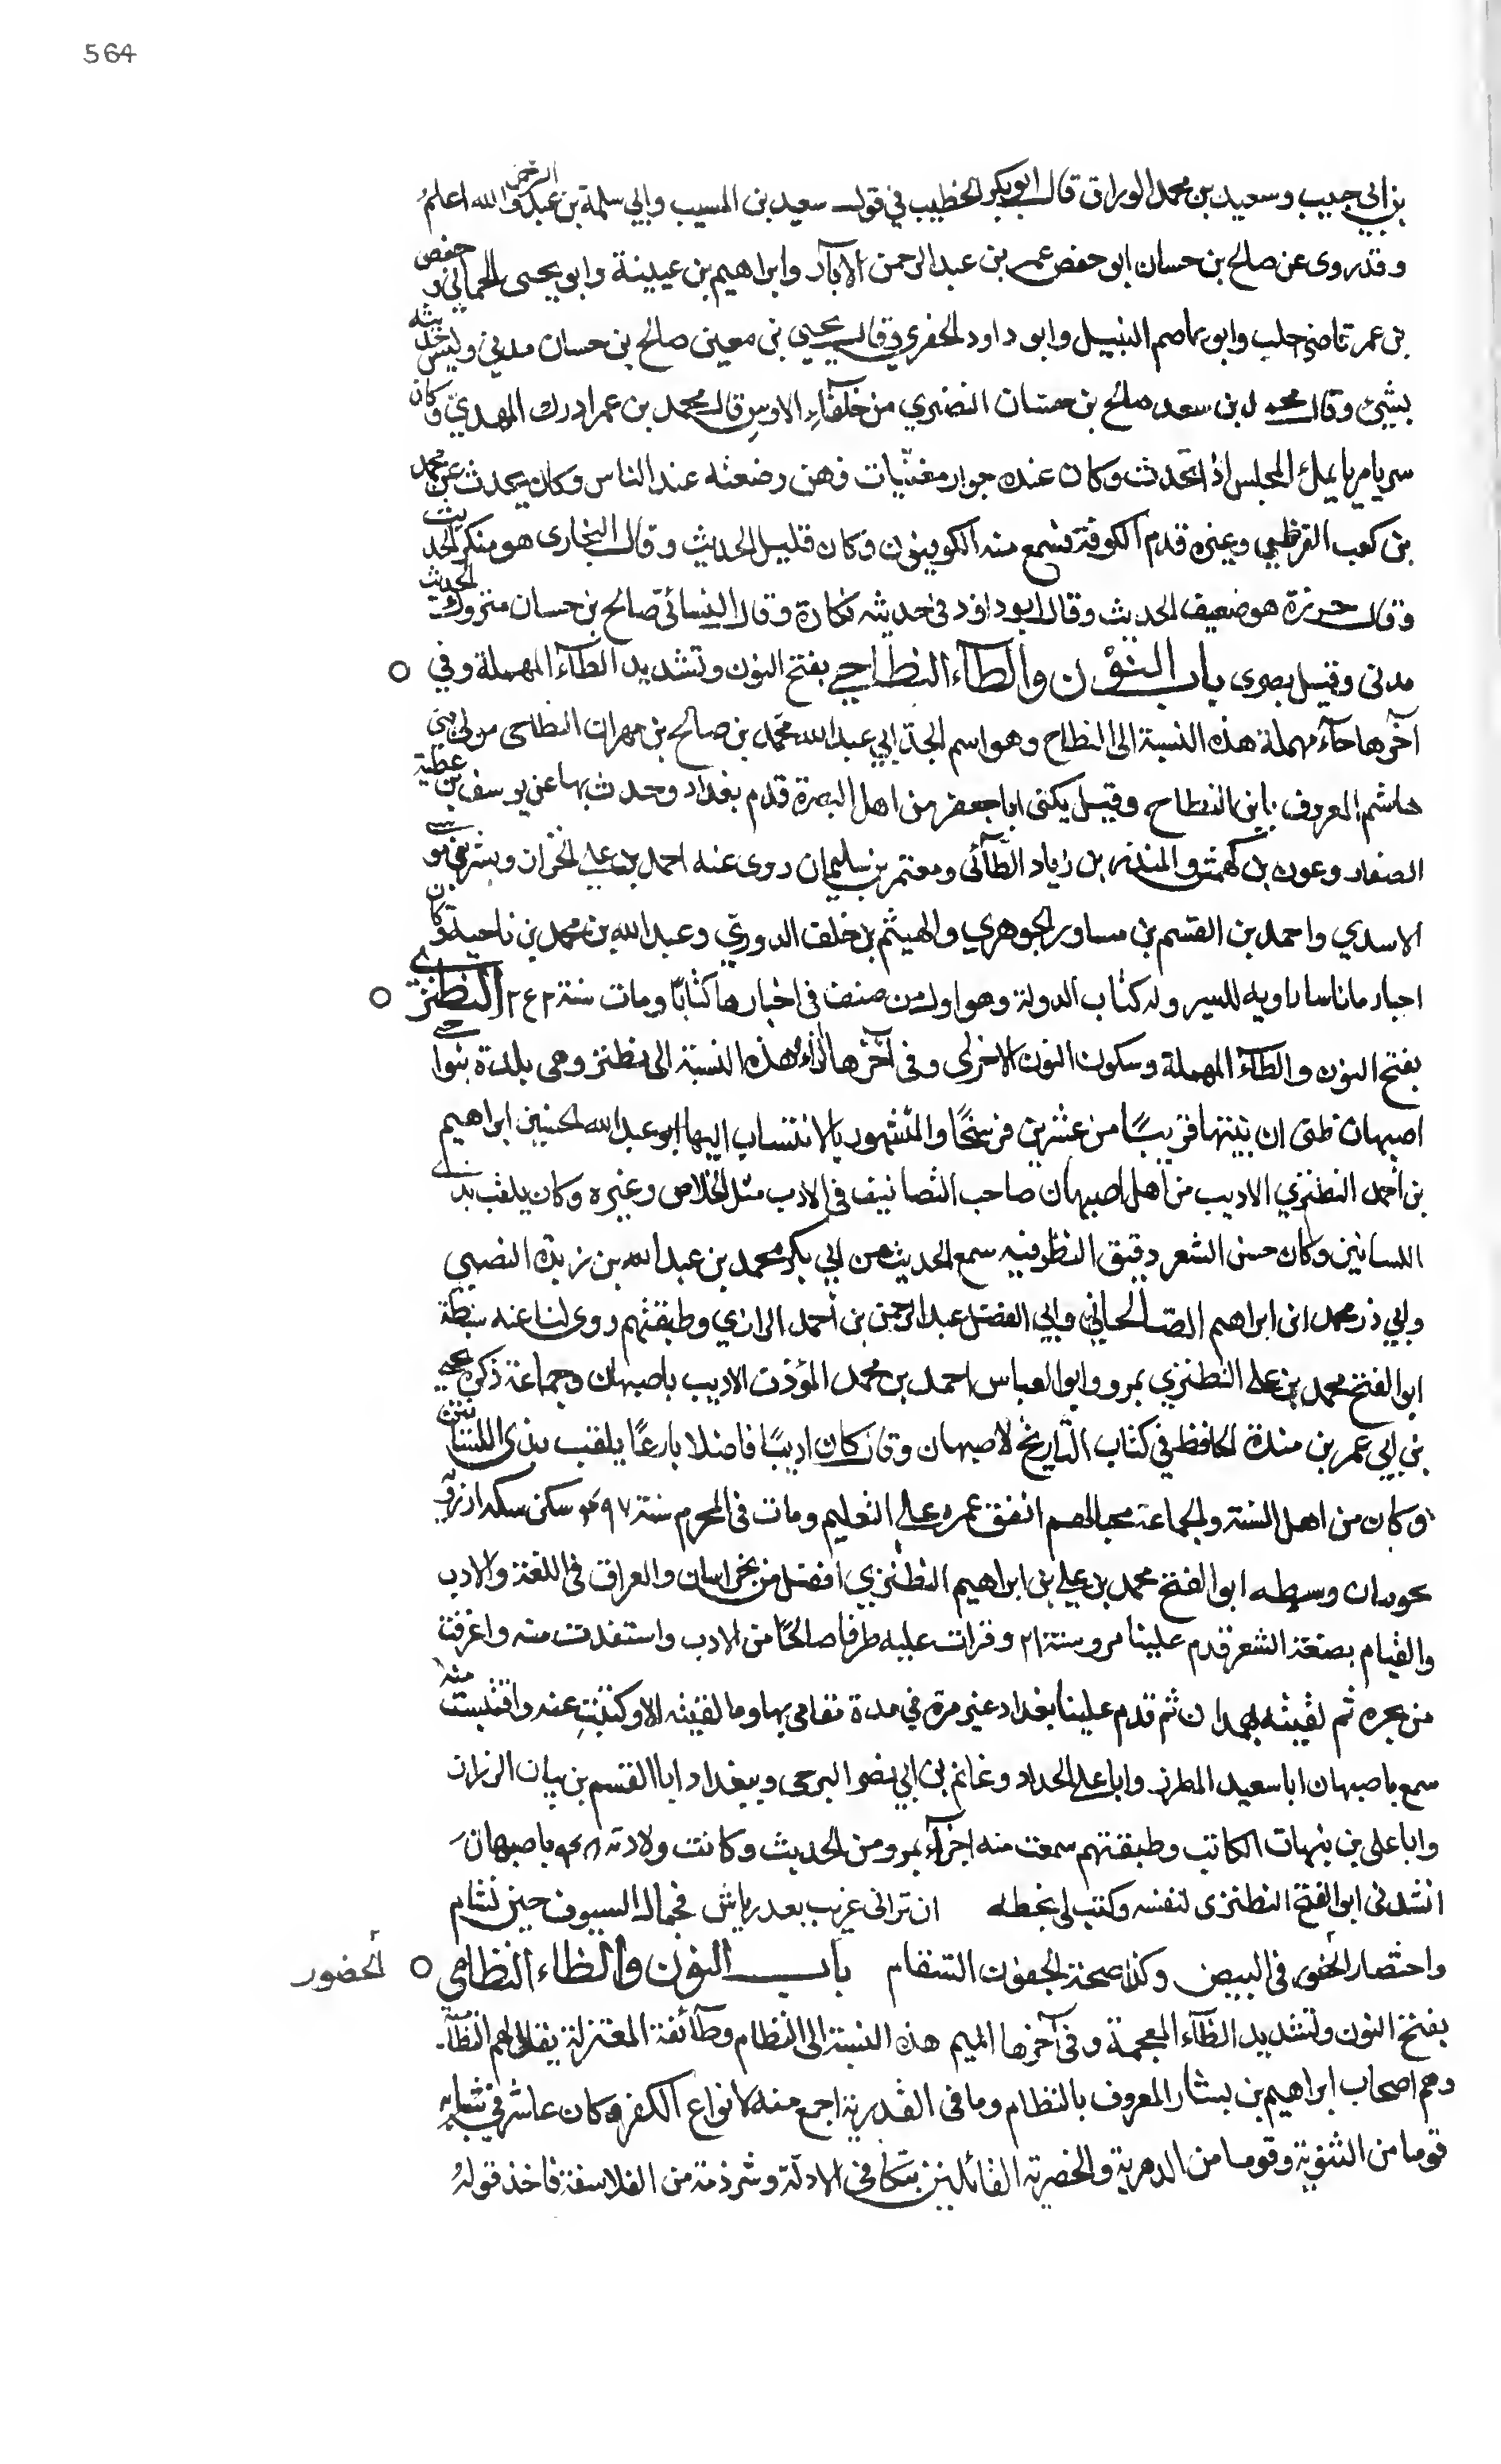 564
بن ابى حبيب وسعيد بن محمد الوراق قال ابو بكر الخطيب في قول سعيد بن المسيب وابي سلمة بن عبد الرحمن والله اعلم
وقد روى عن صالح بن حسان ابو حفص عمر بن عبد الرحمن الابار وابراهيم بن عيينة وابو يحيى الحماني وحفص
بن عمر قاضي حلب وابو عاصم النبيل وابو داود الحفري وقال يحيى بن معين صالح بن حسان مديني وليس حديثه
بشئ وقال محمد بن سعد صالح بن حسان النضري من حلفاء الاوس قال محمد بن عمر ادرك المهدي وكان
سريا مريا يملئ المجلس اذا تحدث وكان عنده جوار مغنيات فهن وضعنه عند الناس وكان يحدث عن محمد
بن كعب القرظي وغيره قدم الكوفة فسمع منه الكوفيون وكان قليل الحديث وقال البخارى هو منكر الحديث
وقال جزرة هو ضعيف الحديث وقال ابو داود فى حديثه نكارة وقال النسائى صالح بن حسان متروك الحديث
مدنى وقيل بصرى باب النون والطاء النطاحي بفتح النون وتشديد الطاء المهملة وفي
آخرها حاء مهملة هذه النسبة الى النطاح وهو اسم لجد ابي عبد الله محمد بن صالح بن مهران النطاحى مولى بني
هاشم المعروف بابن النطاح وقيل يكنى ابا جعفر من اهل البصرة قدم بغداد وحدث بها عن يوسف بن عطية
الصفار وعون بن كهمش والمنذر بن زياد الطائى ومعتمر بن سليمان روى عنه احمد بن علي الخزاز وبشر بن موسى
الاسدي واحمد بن القسم بن مساور الجوهري والهيثم بن خلف الدوري وعبد الله بن محمد بن ناجية وكان
اخباريا ناسبا راوية للسير وله كتاب الدولة وهو اول من صنف فى اخبارها كتابا ومات سنة ٢٥٢ النطنزي
بفتح النون والطاء المهملة وسكون النون الاخرى وفى آخرها الزاء هذه النسبة الى نطنز وهى بلدة بنواحي
اصبهان ظنى ان بينهما قريبا من عشرين فرسخا والمشهور بالانتساب اليها ابو عبد الله الحسين بن ابراهيم
بن احمد النطنزي الاديب من اهل اصبهان صاحب التصانيف فى الادب مثل الخلاص وغيره وكان يلقب بذي
اللسانين وكان حسن الشعر دقيق النظر فيه سمع الحديث من ابي بكر محمد بن عبد الله بن ريذة الضبي
وابي ذر محمد ابن ابراهيم الصالحاني وابي الفضل عبد الرحمن بن احمد الرازي وطبقتهم روى لنا عنه سبطه
ابو الفتح محمد بن علي النطنزي بمرو وابو العباس احمد بن محمد المؤذن الاديب باصبهان وجماعة ذكره يحيى
بن ابي عمر بن مندة الحافظ في كتاب التاريخ لاصبهان وقال كان اديبا فاضلا بارعا يلقب بذى اللسانين
وكان من اهل السنة والجماعة انفق عمره على التعليم ومات فى المحرم سنة ٤٩٧ سكن سكه
وسبطه ابو الفتح محمد بن علي بن ابراهيم النطنزي افضل من بخراسان والعراق فى اللغة والادب
والقيام بصنعة الشعر قدم علينا مرو سنة ٢١ وقرات عليه طرفا صالحا من الادب واستفدت منه واغرفت
من بحره ثم لقيته بهمدان ثم قدم علينا بغداد غير مرة في مدة مقامى بها وما لقيته الا وكتبت عنه واقتبست منه
سمع باصبهان ابا سعيد المطرز وابا علي الحداد وغانم بن ابي نصر البرجى وببغداد ابا القسم بن بيان الرزاز
وابا على بن نبهان الكاتب وطبقتهم سمعت منه اجزاء بمرو من الحديث وكانت ولادته باصبهان
انشدنى ابو الفتح النطنزى لنفسه وكتب لي بخطه ان ترانى عريت بعد رياش فجمال السيوف حين تشام
واحتضار الحضور فى البيض وكذا صحة الجفون السقام باب النون والظاء النظامي الحضور
بفتح النون وتشديد الظاء المعجمة وفى آخرها الميم هذه النسبة الى النظام وطائفة المعتزلة يقال لهم النظامية
وهم اصحاب ابراهيم بن بشار المعروف بالنظام وما فى القدرية اجمع منه لانواع الكفر وكان عاشر فى شبابه
قوما من الثنوية وقوما من الدهرية والحصرية القائلين بتكافئ الادلة وشرذمة من الفلاسفة فاخذ قوله